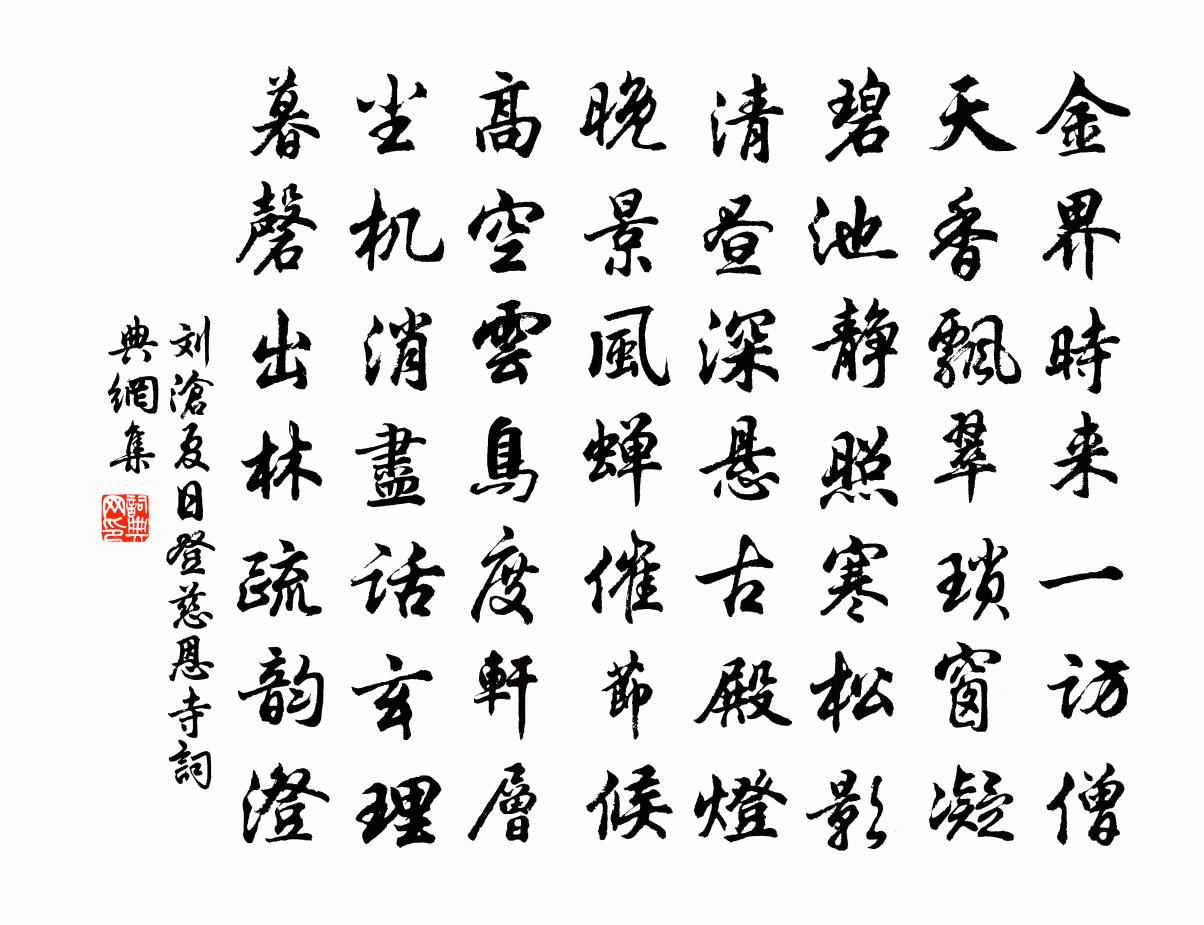 金界時来一访僧
天香飄翠琐窗凝
碧池靜照寒松影
清昼深悬古殿燈
晩景風蝉催節候
高空雲鳥度軒層
尘机消盡话玄理
暮磬出林疏韵澄
刘滄夏日登慈恩寺詞
典網集
詞典
网印